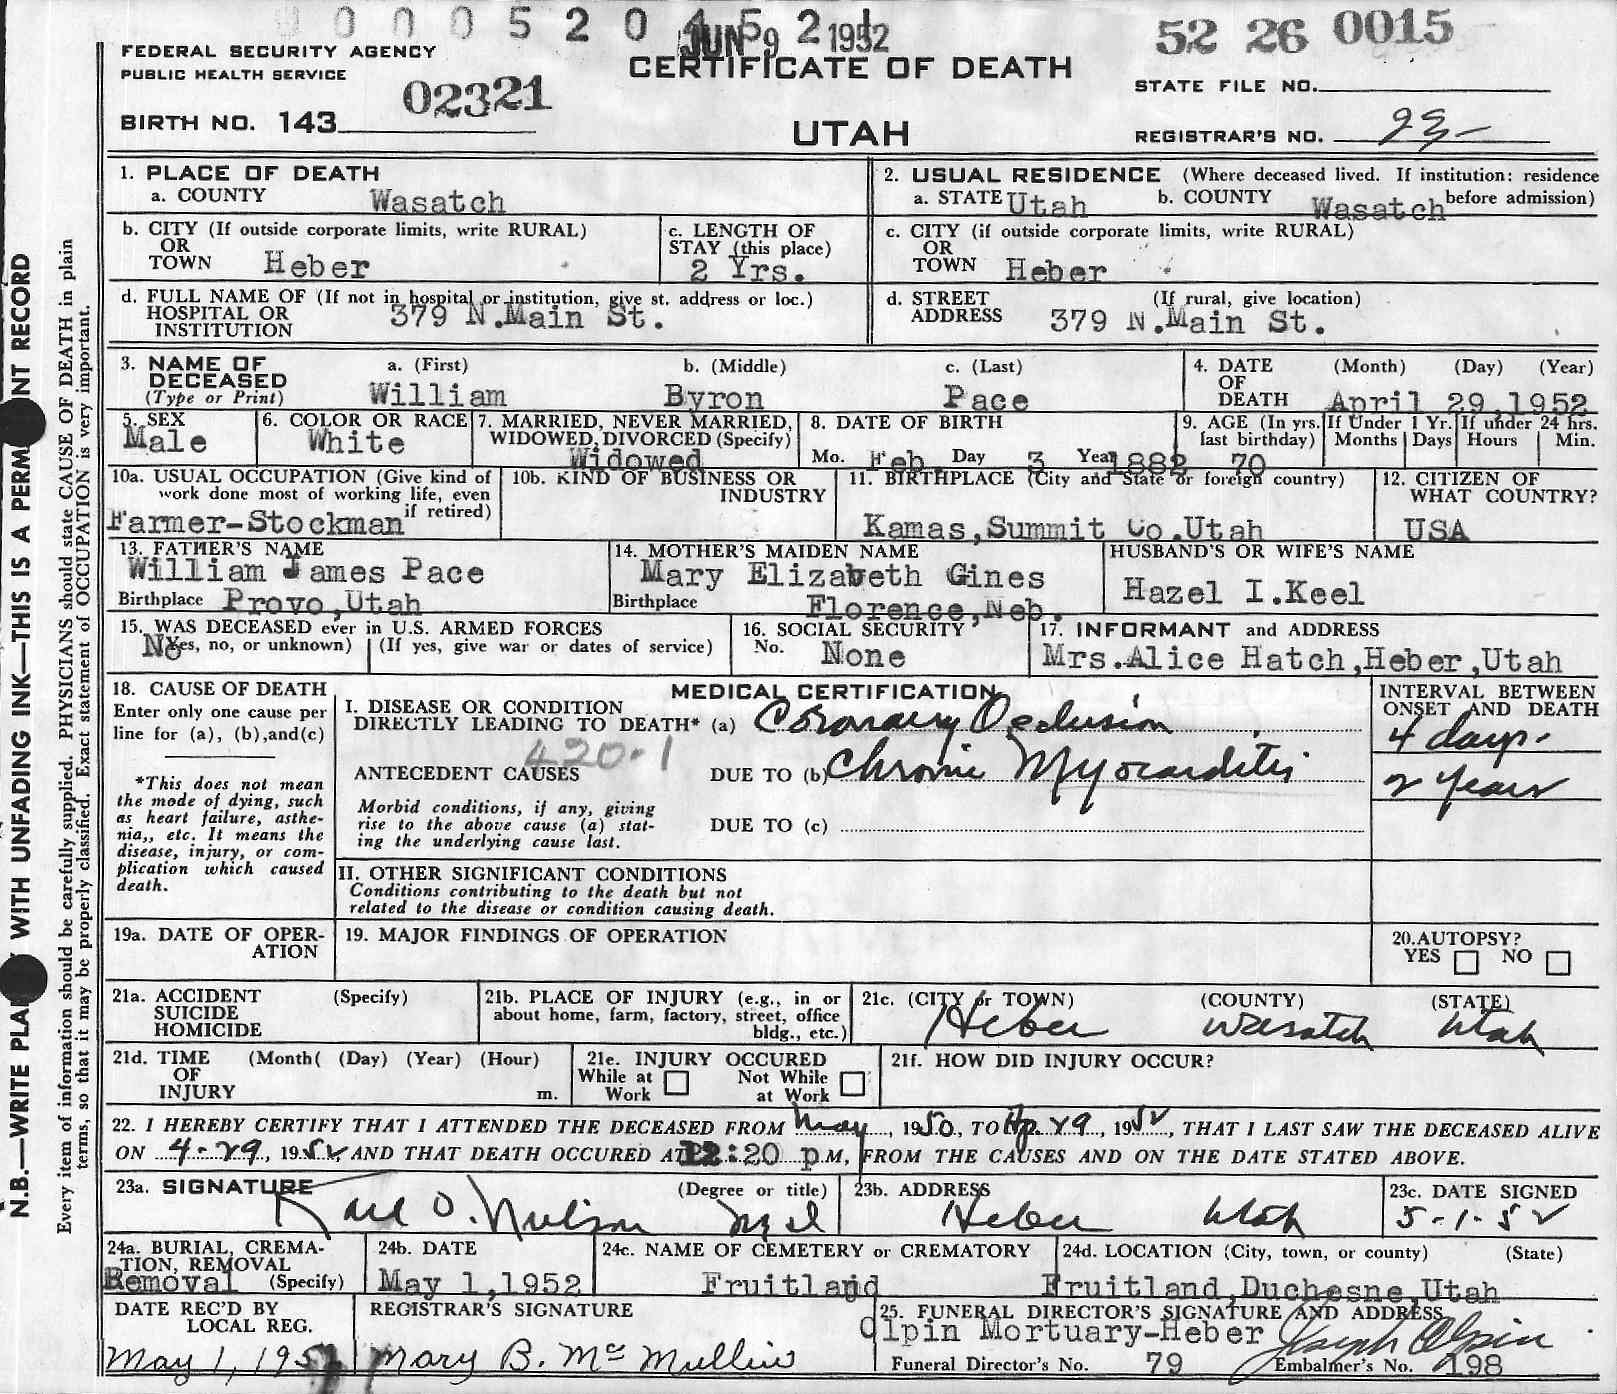 0 0 0 5 2 0
JUN 9 2 1952
52 26 0015
FEDERAL SECURITY AGENCY
PUBLIC HEALTH SERVICE
CERTIFICATE OF DEATH
STATE FILE NO.
02321
BIRTH NO. 143
UTAH
REGISTRAR'S NO.
1. PLACE OF DEATH
a. COUNTY Wasatch
2. USUAL RESIDENCE (Where deceased lived. If institution: residence before admission)
a. STATE Utah b. COUNTY Wasatch
b. CITY (If outside corporate limits, write RURAL)
OR
TOWN Heber
c. LENGTH OF
STAY (this place)
2 Yrs.
c. CITY (if outside corporate limits, write RURAL)
OR
TOWN Heber
d. FULL NAME OF (If not in hospital or institution, give st. address or loc.)
HOSPITAL OR
INSTITUTION 379 N.Main St.
d. STREET (If rural, give location)
ADDRESS 379 N.Main St.
3. NAME OF DECEASED (Type or Print)
a. (First) b. (Middle) c. (Last)
William Byron Pace
4. DATE OF DEATH (Month) (Day) (Year)
April 29,1952
5. SEX
Male
6. COLOR OR RACE
White
7. MARRIED, NEVER MARRIED,
WIDOWED, DIVORCED (Specify)
Widowed
8. DATE OF BIRTH
Mo. Feb. Day 3 Year 1882
9. AGE (In yrs. last birthday)
70
If Under 1 Yr. If under 24 hrs.
Months Days Hours Min.
10a. USUAL OCCUPATION (Give kind of
work done most of working life, even
if retired)
Farmer-Stockman
10b. KIND OF BUSINESS OR
INDUSTRY
11. BIRTHPLACE (City and State or foreign country)
Kamas,Summit Co.Utah
12. CITIZEN OF
WHAT COUNTRY?
USA
13. FATHER'S NAME
William James Pace
Birthplace Provo,Utah
14. MOTHER'S MAIDEN NAME
Mary Elizabeth Gines
Birthplace Florence,Neb.
HUSBAND'S OR WIFE'S NAME
Hazel I.Keel
15. WAS DECEASED ever in U.S. ARMED FORCES
No
(Yes, no, or unknown) (If yes, give war or dates of service)
16. SOCIAL SECURITY
No. None
17. INFORMANT and ADDRESS
Mrs.Alice Hatch,Heber,Utah
18. CAUSE OF DEATH
Enter only one cause per
line for (a), (b),and(c)
*This does not mean
the mode of dying, such
as heart failure, asthe-
nia,, etc. It means the
disease, injury, or com-
plication which caused
death.
MEDICAL CERTIFICATION
I. DISEASE OR CONDITION
DIRECTLY LEADING TO DEATH* (a) Coronary Occlusion
420.1
ANTECEDENT CAUSES DUE TO (b) Chronic Myocarditis
Morbid conditions, if any, giving
rise to the above cause (a) stat-
ing the underlying cause last.
DUE TO (c)
INTERVAL BETWEEN
ONSET AND DEATH
4 days.
2 years
II. OTHER SIGNIFICANT CONDITIONS
Conditions contributing to the death but not
related to the disease or condition causing death.
19a. DATE OF OPER-
ATION
19. MAJOR FINDINGS OF OPERATION
20.AUTOPSY?
YES NO
21a. ACCIDENT (Specify)
SUICIDE
HOMICIDE
21b. PLACE OF INJURY (e.g., in or
about home, farm, factory, street, office
bldg., etc.)
21c. (CITY or TOWN) (COUNTY) (STATE)
Heber Wasatch Utah
21d. TIME (Month( (Day) (Year) (Hour)
OF
INJURY m.
21e. INJURY OCCURED
While at Work Not While at Work
21f. HOW DID INJURY OCCUR?
22. I HEREBY CERTIFY THAT I ATTENDED THE DECEASED FROM May, 1950, TO Ap. 29, 1952, THAT I LAST SAW THE DECEASED ALIVE
ON 4-29, 1952, AND THAT DEATH OCCURED AT 12:20 p M, FROM THE CAUSES AND ON THE DATE STATED ABOVE.
23a. SIGNATURE (Degree or title)
Karl O. Nielson M.D.
23b. ADDRESS
Heber Utah
23c. DATE SIGNED
5-1-52
24a. BURIAL, CREMA-
TION, REMOVAL
Removal (Specify)
24b. DATE
May 1,1952
24c. NAME OF CEMETERY or CREMATORY
Fruitland
24d. LOCATION (City, town, or county) (State)
Fruitland,Duchesne,Utah
DATE REC'D BY
LOCAL REG.
May 1, 1952
REGISTRAR'S SIGNATURE
Mary B. McMullin
25. FUNERAL DIRECTOR'S SIGNATURE AND ADDRESS
Olpin Mortuary-Heber Joseph Olpin
Funeral Director's No. 79 Embalmer's No. 198
N.B.—WRITE WITH UNFADING INK—THIS IS A RECORD
Every item of information should be carefully supplied. PHYSICIANS should state CAUSE OF DEATH in plain
terms, so that it may be properly classified. Exact statement of OCCUPATION is very important.